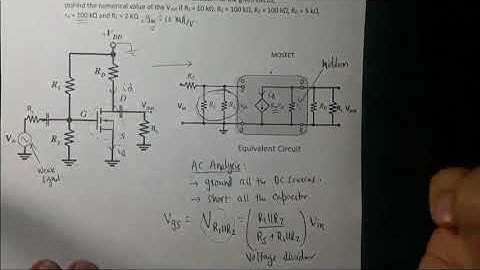 (b)Find the numerical value of the Vout if R1 = 10 kΩ, R2 = 100 kΩ, RS = 5 kΩ
ro = 100 kΩ and RL = 2 KΩ
VDD
R1
RD
id
D
Vout
G
S
id
Rs
R2
RL
Vin
Weak
signal
MOSFET
hidden
Rs
Vin
R1
R2
id
RD
RL
Vout
Equivalent Circuit
AC Analysis:
→ ground all the DC sources.
→ short all the capacitor
Vgs = VR1||R2 = (R1||R2 / RS + R1||R2) Vin
Voltage divider